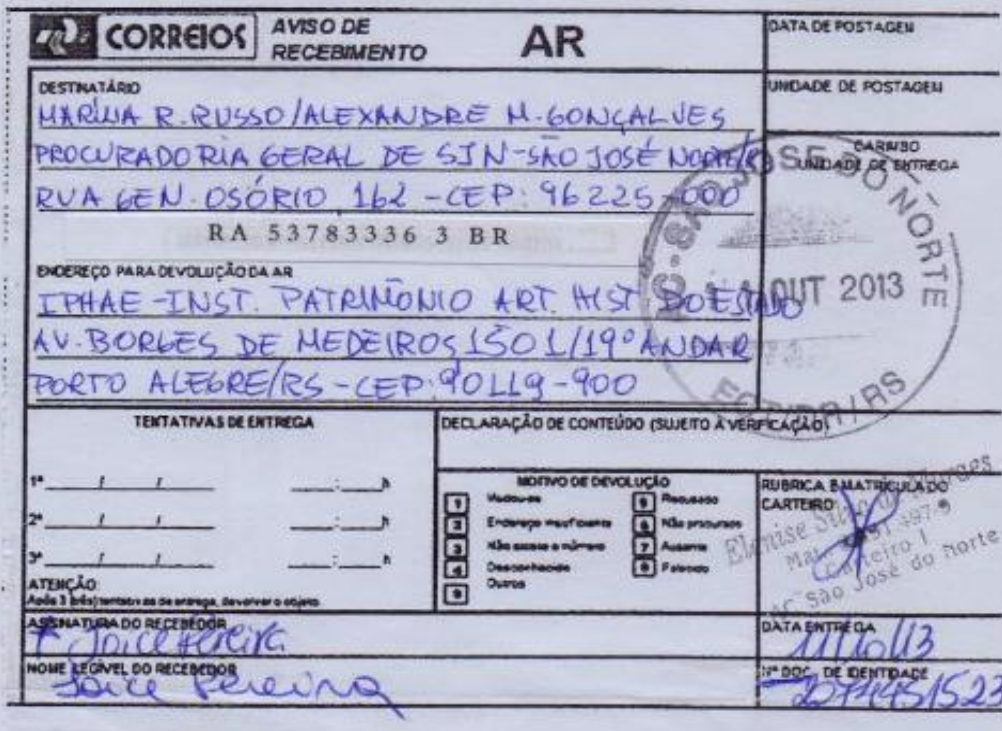 CORREIOS
AVISO DE RECEBIMENTO
AR
DATA DE POSTAGEM
UNIDADE DE POSTAGEM
DESTINATÁRIO
MARINA R. RUSSO/ALEXANDRE M. GONÇALVES
PROCURADORIA GERAL DE SJN-SÃO JOSÉ NORTE/R
RUA GEN. OSÓRIO, 162 - CEP: 96225-000
RA 53783336 3 BR
CARIMBO
UNIDADE DE ENTREGA
SÃO JOSE DO NORTE
OUT 2013
ECT/DR/RS
ENDEREÇO PARA DEVOLUÇÃO DA AR
IPHAE-INST. PATRIMÔNIO ART. HIST DO ESTADO
AV. BORGES DE MEDEIROS 1501/19º ANDAR
PORTO ALEGRE/RS-CEP: 90119-900
TENTATIVAS DE ENTREGA
1ª ____/____/____ ____:____h
2ª ____/____/____ ____:____h
3ª ____/____/____ ____:____h
ATENÇÃO:
Após 3 (três) tentativas de entrega, devolver o objeto.
DECLARAÇÃO DE CONTEÚDO (SUJEITO À VERIFICAÇÃO)
MOTIVO DE DEVOLUÇÃO
1 Mudou-se
2 Endereço insuficiente
3 Não existe o número
4 Desconhecido
9 Outros
5 Recusado
6 Não procurado
7 Ausente
8 Falecido
RUBRICA E MATRÍCULA DO
CARTEIRO
Carteiro I
AC São José do Norte
ASSINATURA DO RECEBEDOR
Joice Pereira
DATA ENTREGA
11/10/13
NOME LEGÍVEL DO RECEBEDOR
Joice Pereira
Nº DOC. DE IDENTIDADE
2074451523